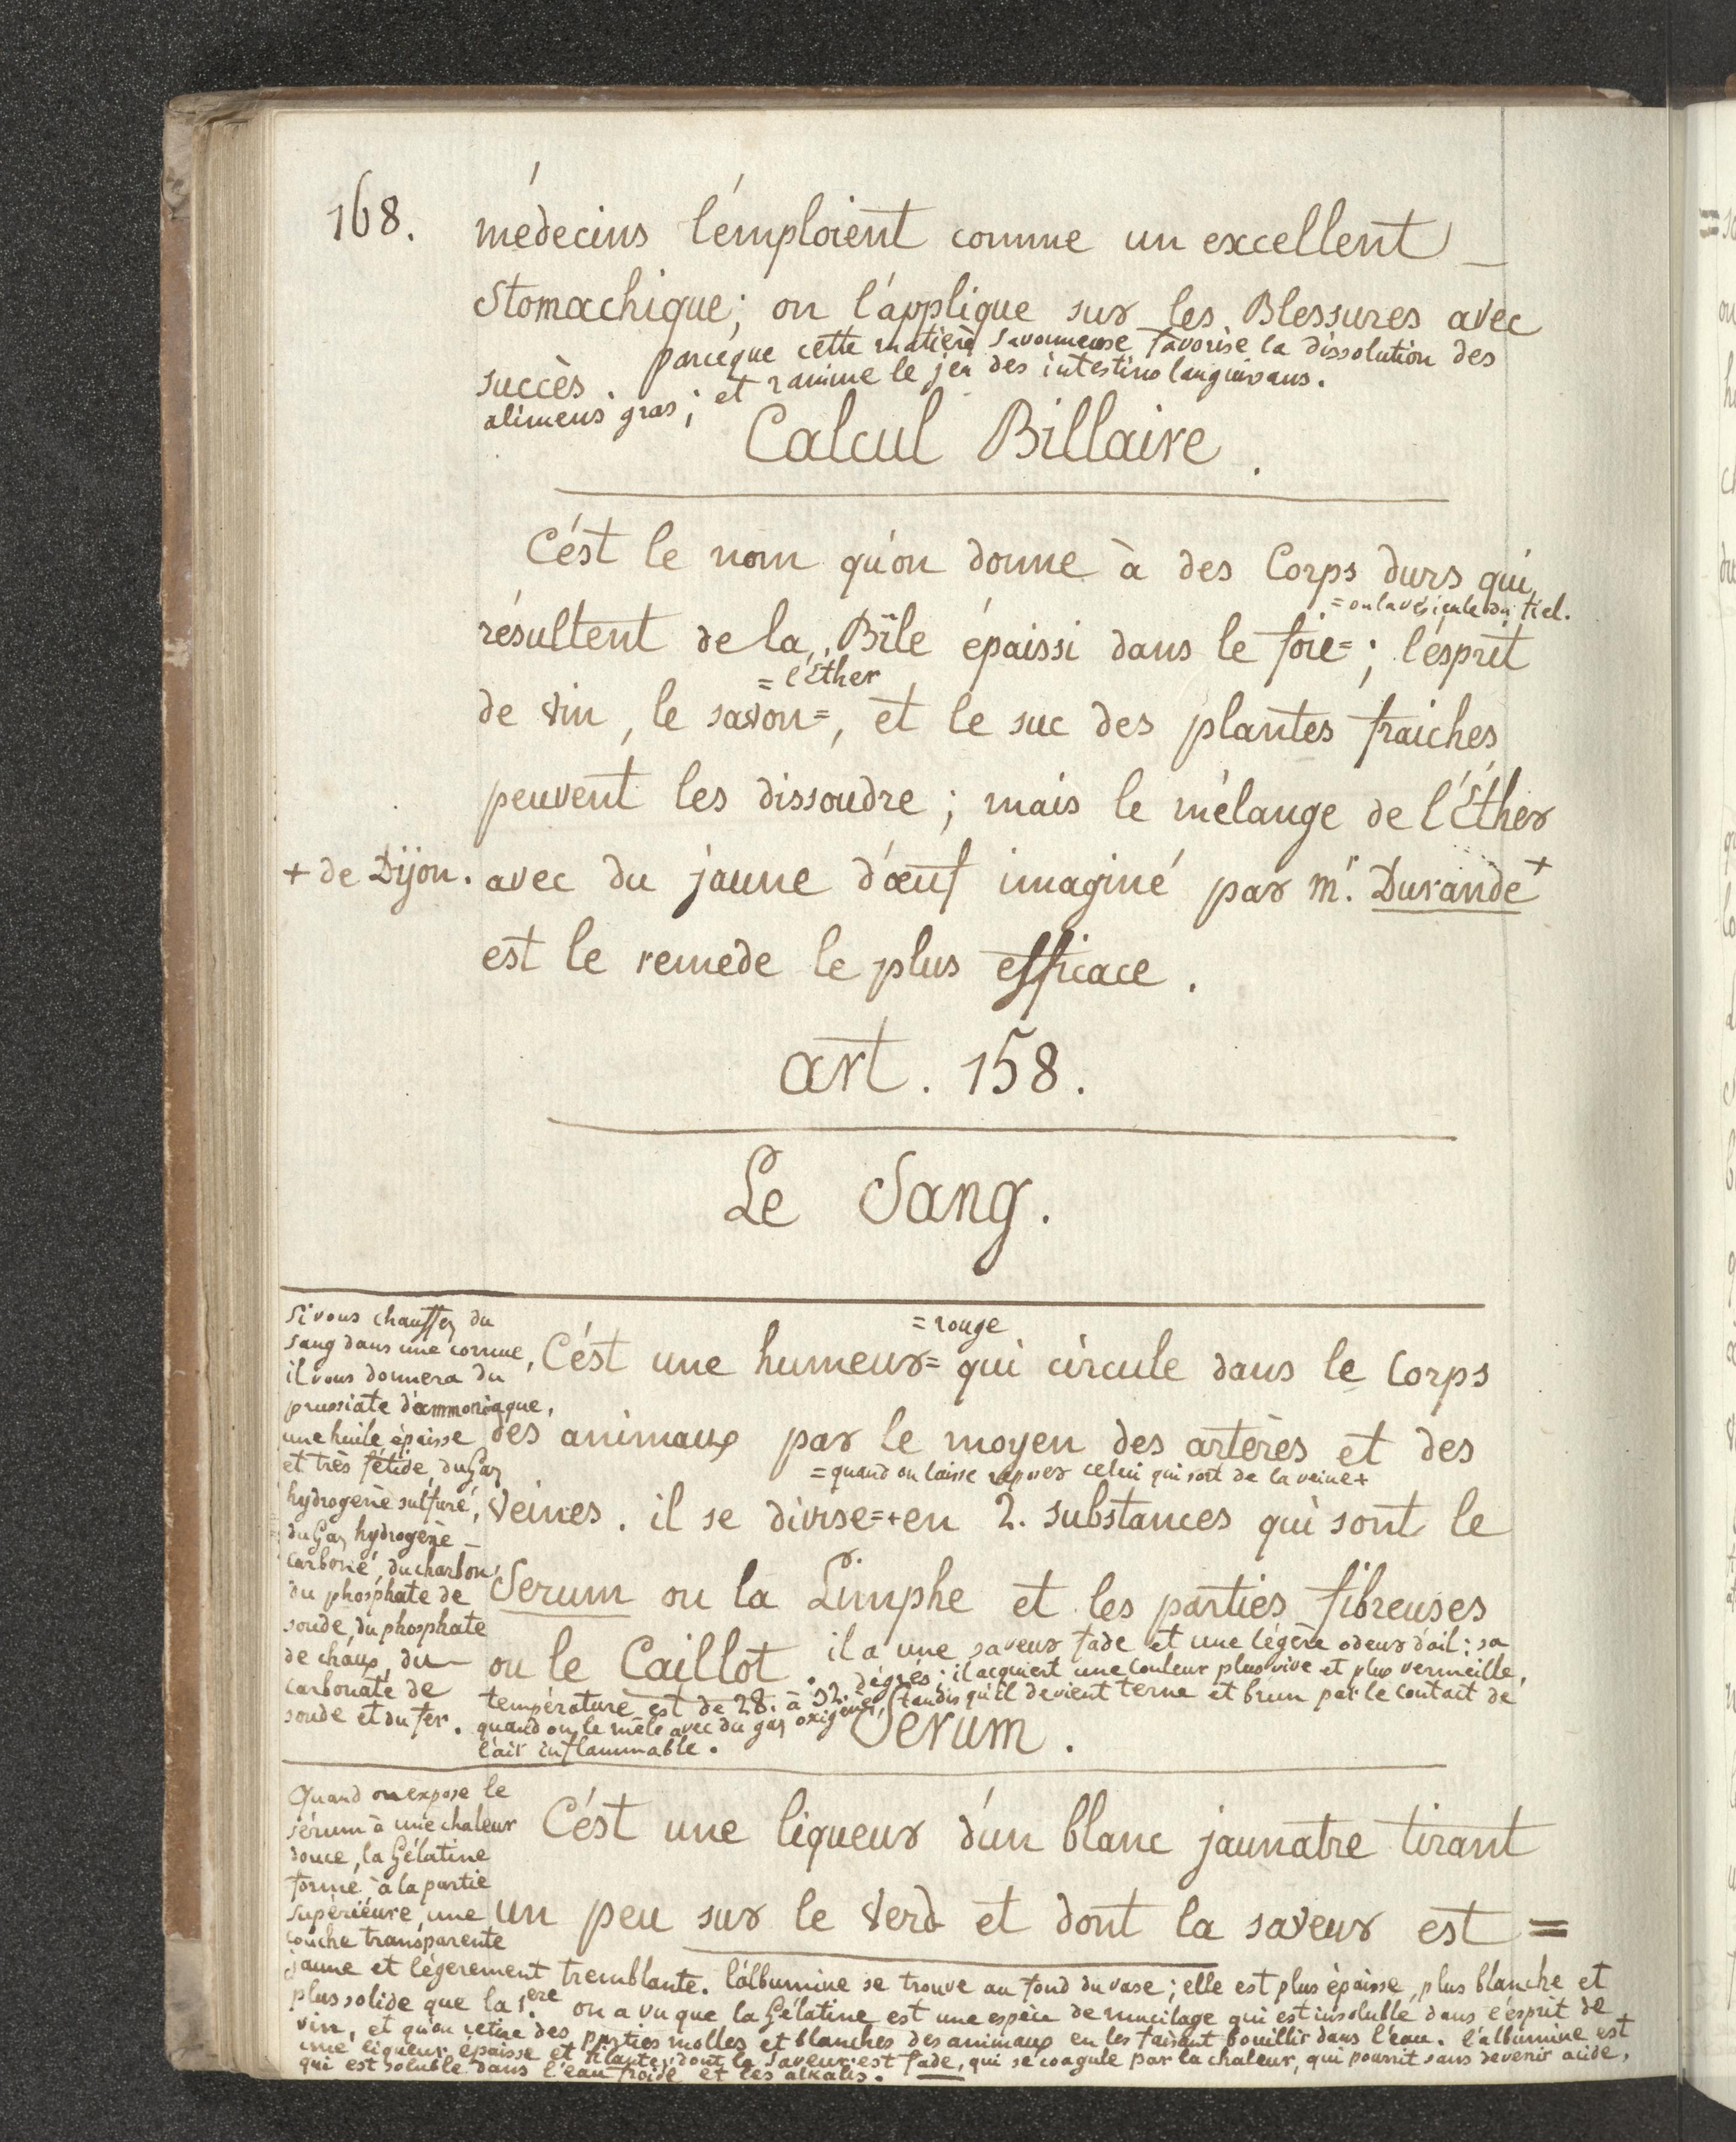 168.
médecins l'émploient comme un excellent
Stomachique; on l'ápplique sur les Blessures avec
succès. parcéque cette matière savonneuse favorise la dissolution des
alimens gras; et ranime le jeu des intestins languissans.
Calcul Billaire.
C'ést le nom qu'on donne à des Corps durs qui
= ou la vésicule du fiel.
résultent de la Bile épaissi dans le foie=; l'ésprit
= l'Éther
de vin, le savon=, et le suc des plantes fraiches
peuvent les dissoudre; mais le mélange de l'Éther
+ de Dijon.
avec du jaune d'œuf imaginé par mr. Durande+
est le remede le plus efficace.
art. 158.
Le Sang.
Si vous chauffez du
sang dans une cornue,
il vous donnera du
prussiate d'ammoniaque,
une huile épaisse
et très fétide, du Gaz
hydrogène sulfuré,
du Gaz hydrogène -
carboné, du charbon,
du phosphate de
soude, du phosphate
de chaux, du -
carbonate de
soude et du fer.
= rouge
C'ést une humeur= qui circule dans le Corps
des animaux par le moyen des artères et des
= quand on laisse reposer celui qui sort de la veine+
Veines. il se divise=+en 2. substances qui sont le
Serum ou la Limphe et les parties fibreuses
ou le Caillot. il a une saveur fade et une légère odeur d'ail: sa
température est de 28. à 32. dégrés; il acquiert une couleur plus vive et plus vermeille,
quand on le mêle avec du gaz oxigène, tandis qu'il devient terne et brun par le contact de
l'air inflammable.
Serum.
Quand on expose le
sérum à une chaleur
douce, la Gélatine
forme à la partie
supérieure, une
couche transparente
C'ést une liqueur d'un blanc jaunatre tirant
un peu sur le Verd et dont la saveur est =
jaune et légerement tremblante. l'álbumine se trouve au fond du vase; elle est plus épaisse, plus blanche et
plus solide que la 1.ere on a vu que la Gélatine est une espèce de mucilage qui est insoluble dans l'esprit de
vin, et qu'on retire des parties molles et blanches des animaux en les faisant bouillir dans l'eau. l'albumine est
une liqueur épaisse et filante, dont la saveur est fade, qui se coagule par la chaleur, qui pourrit sans devenir acide,
qui est soluble dans l'eau froide et les alkalis.